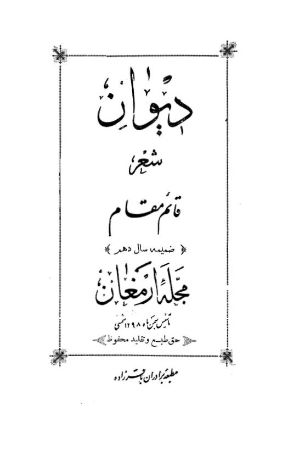 دیوان
شعر
قائم مقام
﴿ ضمیمه سال دهم ﴾
مجلهٔ ارمغان
تأسیس بهمن ماه ۱۲۹۸ شمسی
﴿ حق طبع و تقلید محفوظ ﴾
مطبعه برادران باقرزاده